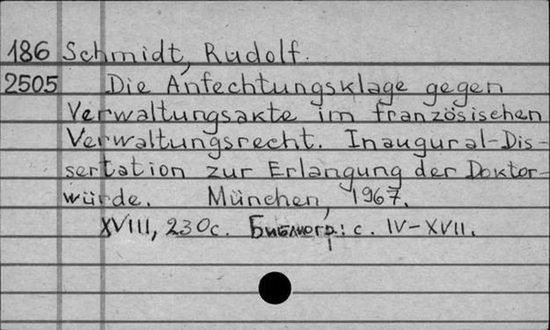 186 Schmidt, Rudolf.
2505 Die Anfechtungsklage gegen
Verwaltungsakte im französischen
Verwaltungsrecht. Inaugural-Dis-
sertation zur Erlangung der Doktor-
würde. München, 1967.
XVIII, 230c. Библиогр.: с. IV-XVII.